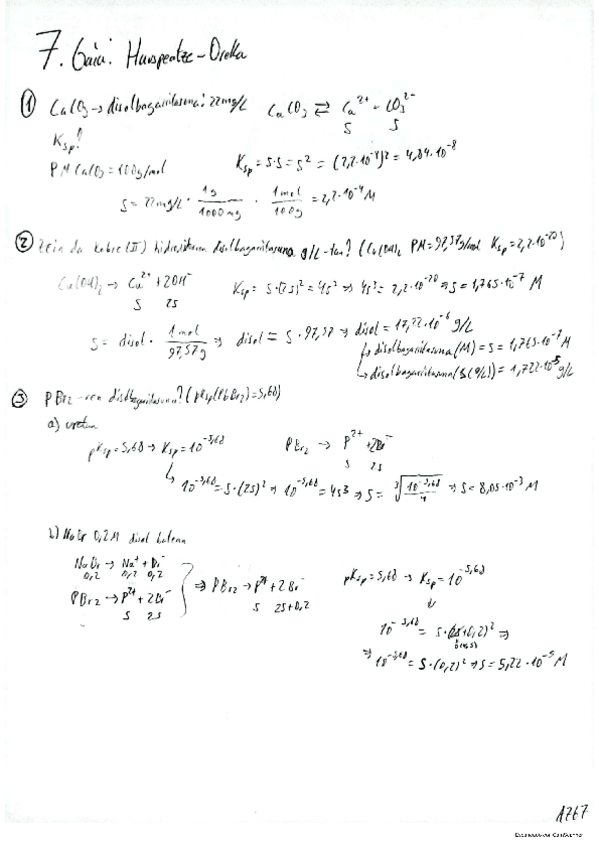 7. Gaia: Hauspeatze-Oreka
① CaCO3 → disolbagarritasuna: 22mg/L CaCO3 ⇄ Ca²⁺ + CO3²⁻
S S
Ksp?
PM CaCO3 = 100g/mol Ksp = S·S = S² = (2,2·10⁻⁴)² = 4,84·10⁻⁸
S = 22mg/L · 1g/1000mg · 1mol/100g = 2,2·10⁻⁴ M
② Zein da kobre(II) hidroxidoaren disolbagarritasuna g/L-tan? (Cu(OH)2 PM=97,57g/mol Ksp=2,2·10⁻²⁰)
Cu(OH)2 → Cu²⁺ + 2OH⁻ Ksp = S·(2S)² = 4S³ ⇒ 4S³ = 2,2·10⁻²⁰ ⇒ S = 1,765·10⁻⁷ M
S 2S
S = disol · 1mol/97,57g ⇒ disol = S · 97,57 ⇒ disol = 17,22·10⁻⁶ g/L
↳ disolbagarritasuna (M) = S = 1,765·10⁻⁷ M
↳ disolbagarritasuna (g/L) = 1,722·10⁻⁵ g/L
③ PBr2-ren disolbagarritasuna? (pKsp(PbBr2)=5,68)
a) uretan
pKsp = 5,68 → Ksp = 10⁻⁵·⁶⁸ PBr2 → P²⁺ + 2Br⁻
S 2S
↳ 10⁻⁵·⁶⁸ = S·(2S)² ⇒ 10⁻⁵·⁶⁸ = 4S³ ⇒ S = ∛(10⁻⁵·⁶⁸/4) ⇒ S = 8,05·10⁻³ M
b) NaBr 0,2M disol batean
NaBr → Na⁺ + Br⁻
0,2 0,2 0,2
PBr2 → P²⁺ + 2Br⁻
S 2S
⇒ PBr2 → P²⁺ + 2Br⁻
S 2S+0,2
pKsp = 5,68 → Ksp = 10⁻⁵·⁶⁸
↓
10⁻⁵·⁶⁸ = S·(2S+0,2)² ⇒
⇒ 10⁻⁵·⁶⁸ = S·(0,2)² ⇒ S = 5,22·10⁻⁵ M
A767